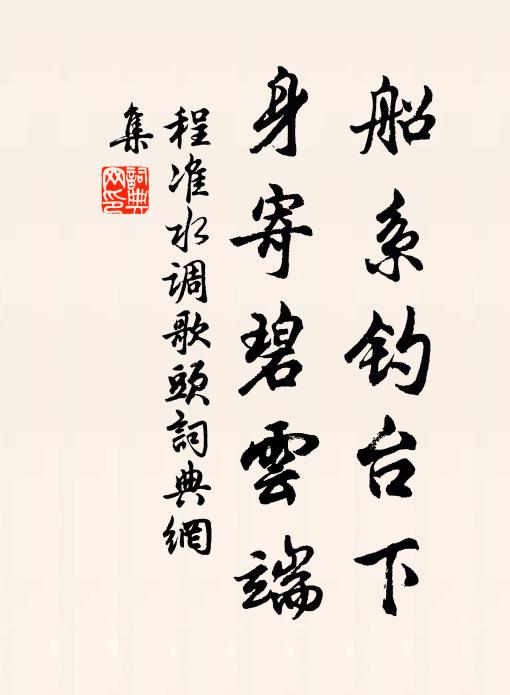 船系钓台下
身寄碧雲端
程准水调歌頭詞典網
集
詞典网印